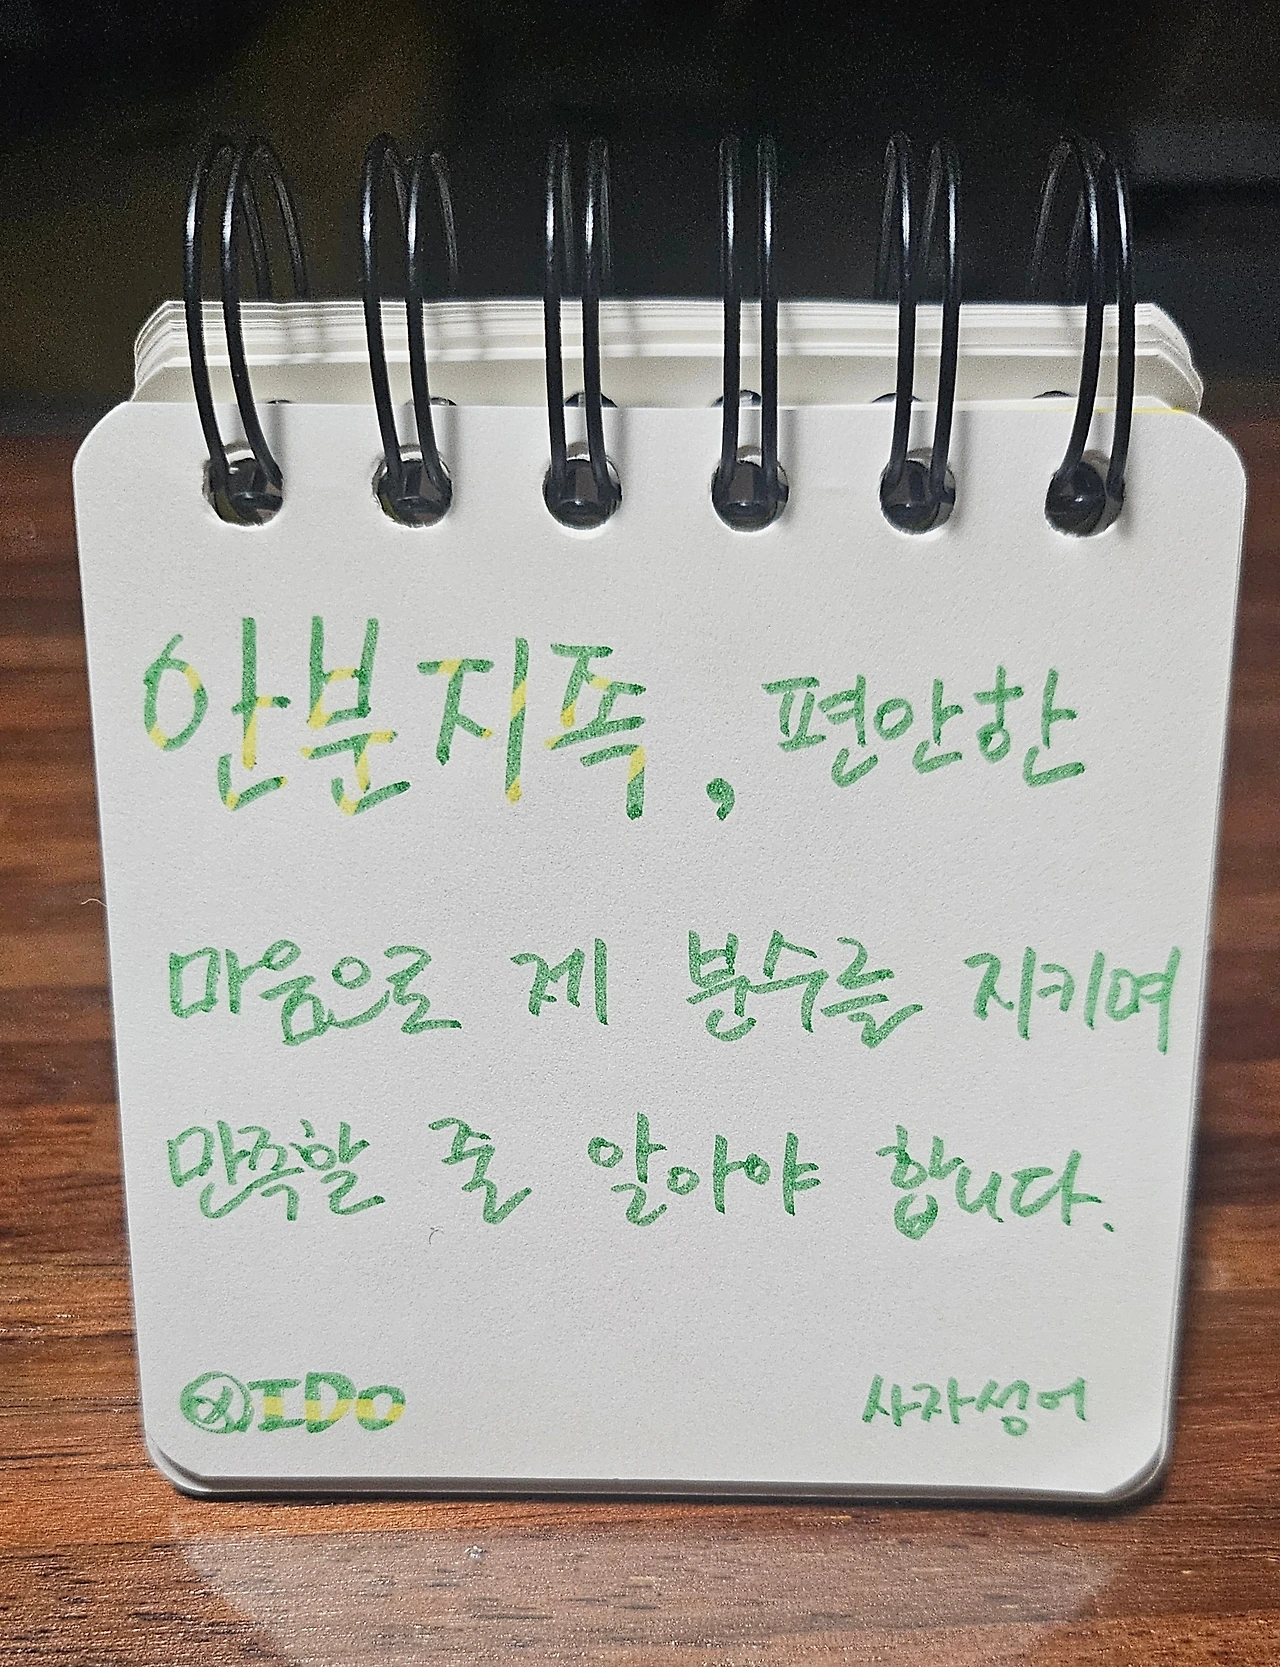 안분지족, 편안한
마음으로 제 분수를 지키며
만족할 줄 알아야 합니다.
IDO 사자성어